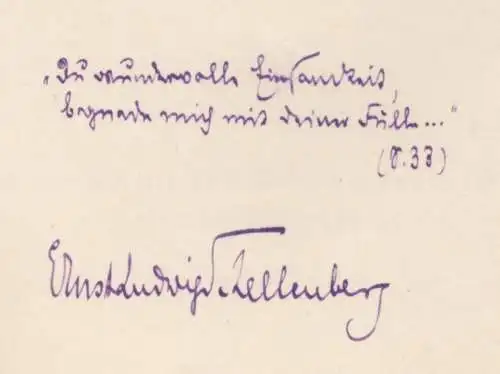 „Du wundervolle Einsamkeit,
begnade mich mit deiner Fülle..."
(S. 33)
Ernst Ludwig Schellenberg